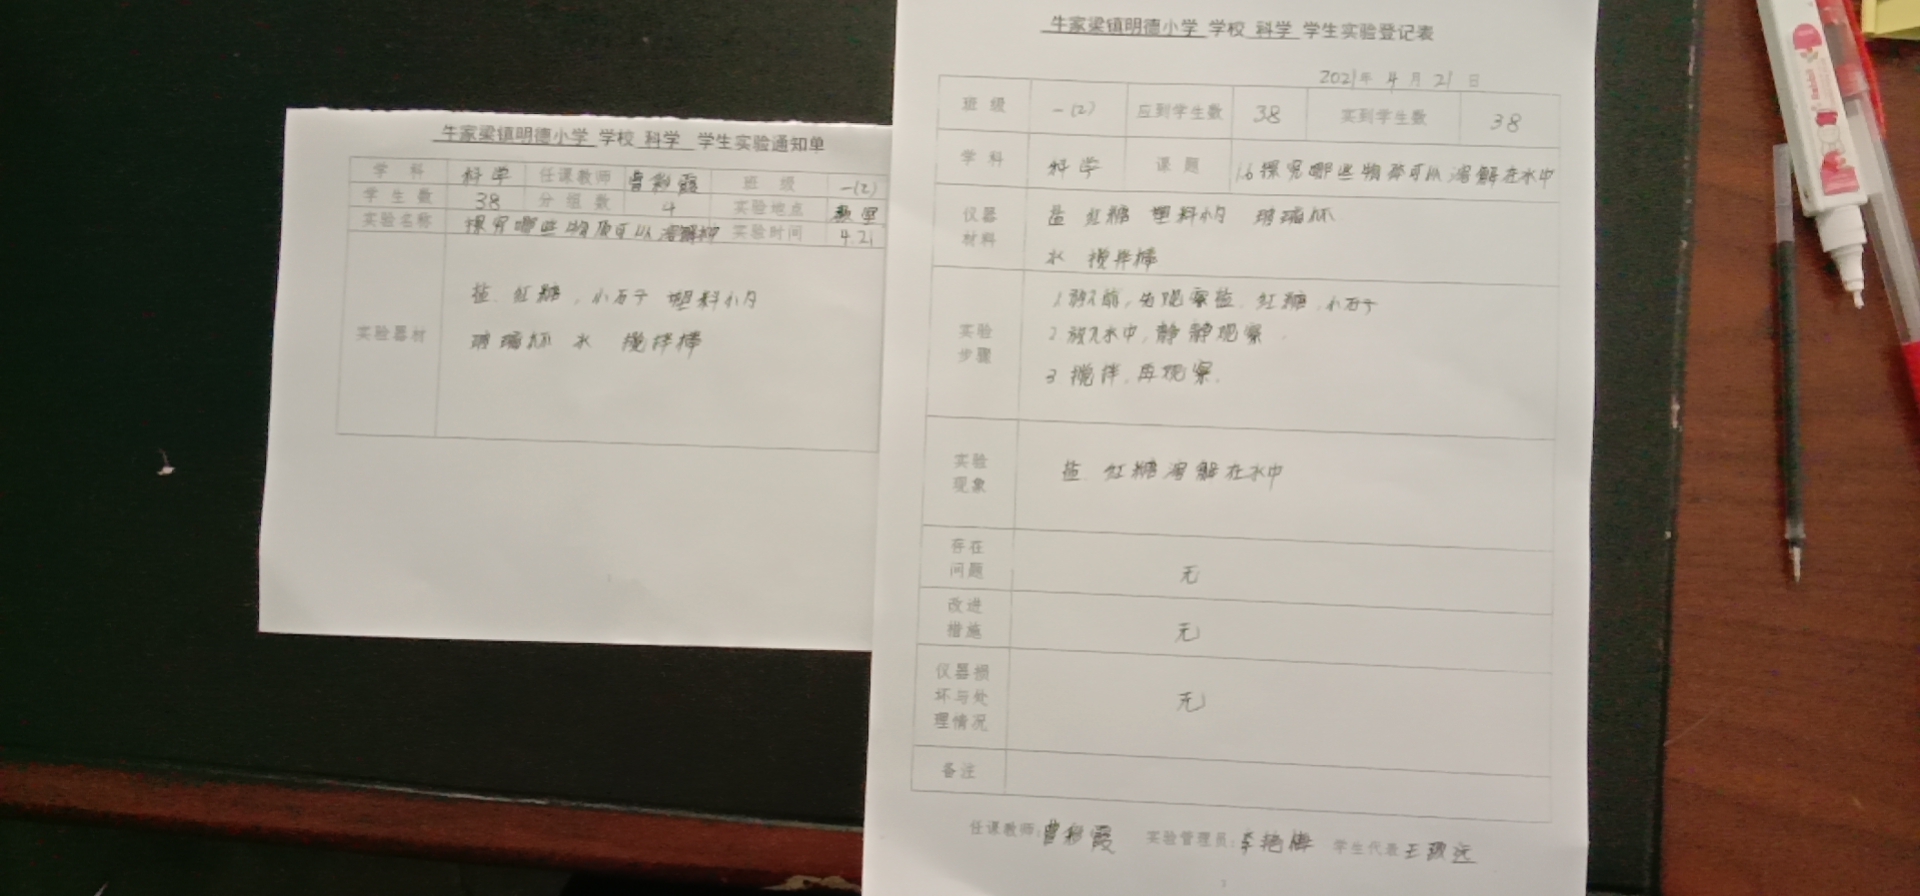 牛家梁镇明德小学 学校 科学 学生实验通知单
学 科 科学 任课教师 曹彩霞 班 级 一(2)
学生数 38 分组数 4 实验地点 教室
实验名称 探究哪些物质可以溶解 实验时间 4.21
实验器材
盐、红糖,小石子 塑料小勺
玻璃杯 水 搅拌棒
牛家梁镇明德小学 学校 科学 学生实验登记表
2021年 4 月 21 日
班 级 一(2) 应到学生数 38 实到学生数 38
学 科 科学 课 题 探究哪些物质可以溶解在水中
仪器材料
盐 红糖 塑料小勺 玻璃杯
水 搅拌棒
实验步骤
1.放入前,先观察盐、红糖、小石子
2 放入水中,静静观察
3 搅拌,再观察.
实验现象
盐 红糖溶解在水中
存在问题
无
改进措施
无
仪器损坏与处理情况
无
备注
任课教师:曹彩霞 实验管理员:李艳梅 学生代表:王